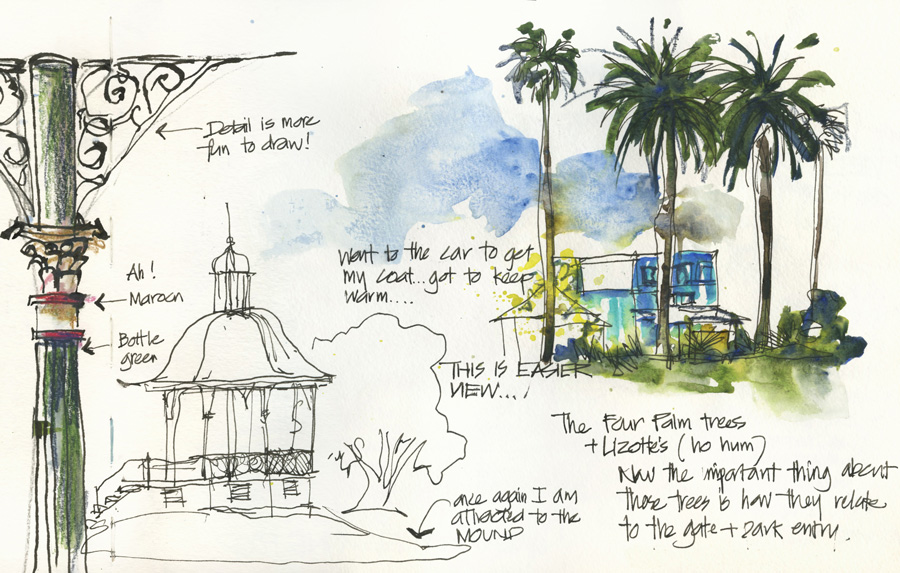 Detail is more
fun to draw!
Ah!
Maroon
Bottle
green
Went to the car to get
my coat...got to keep
warm....
THIS IS EASIER
VIEW...!
The Four Palm trees
+ Lizotte's (ho hum)
Now the important thing about
those trees is how they relate
to the gate + park entry.
once again I am
attracted to the
MOUND